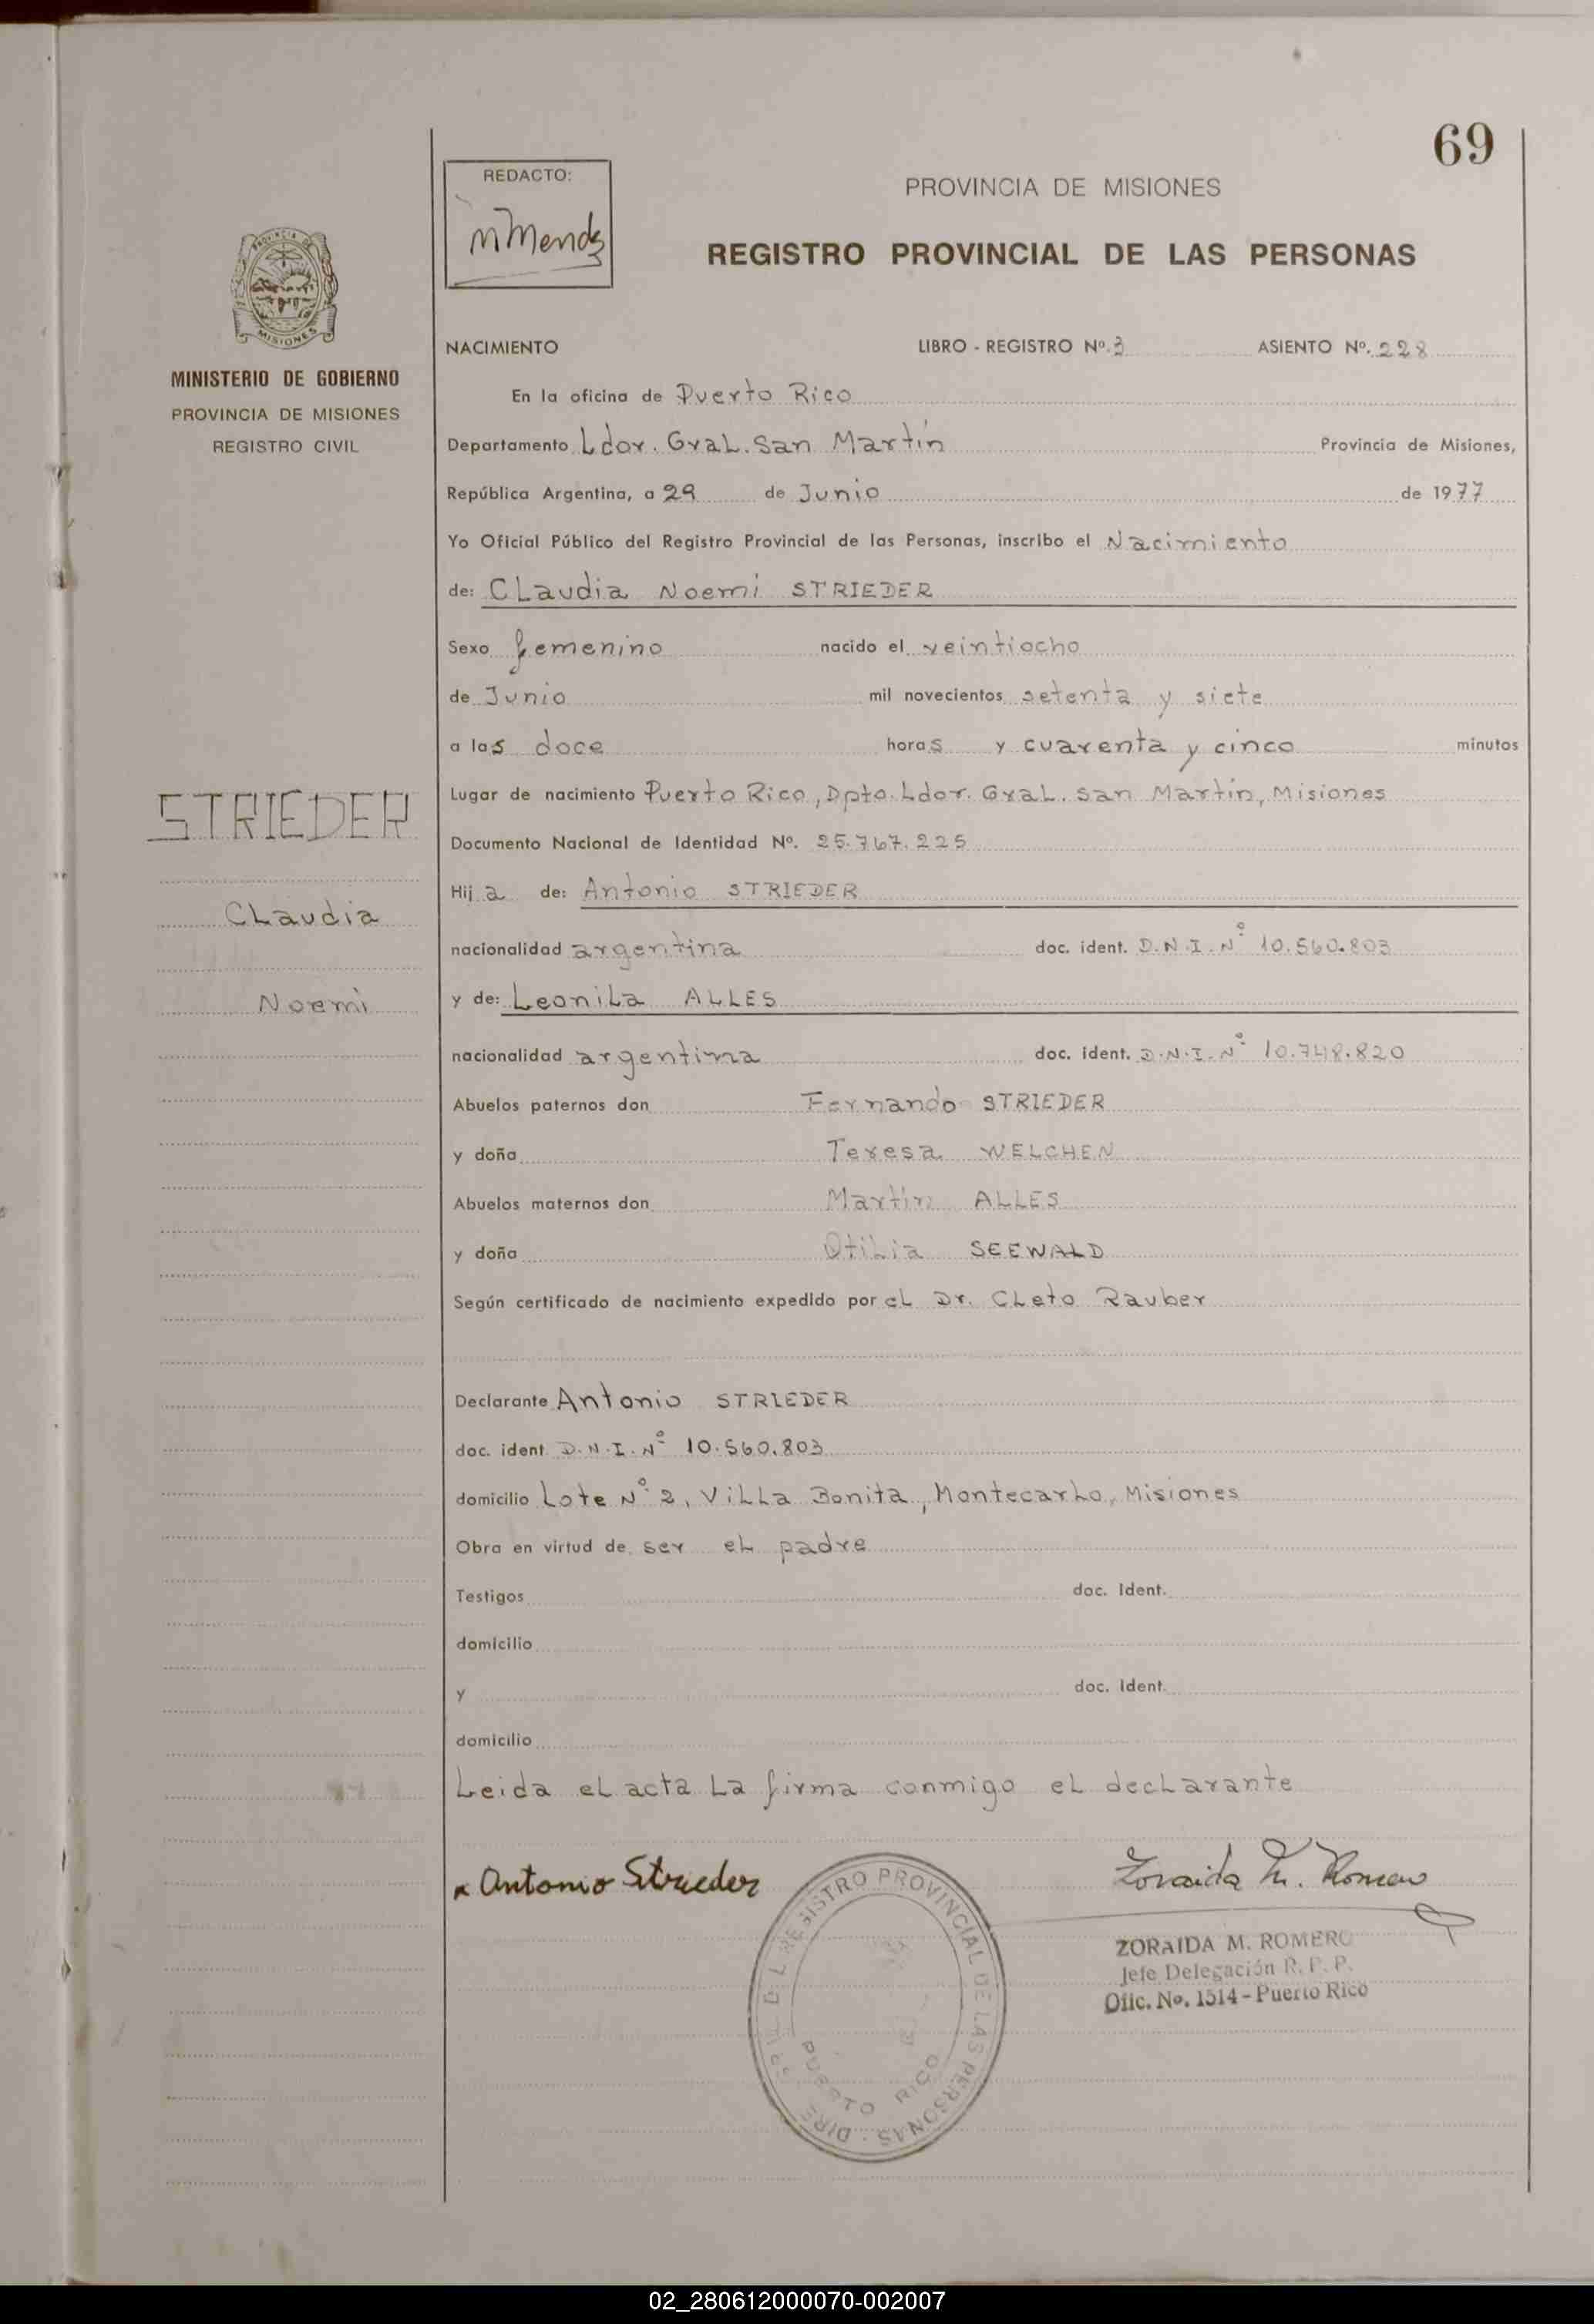 69
REDACTO:
M Mendz
PROVINCIA DE MISIONES
REGISTRO PROVINCIAL DE LAS PERSONAS
PROVINCIA DE
MISIONES
MINISTERIO DE GOBIERNO
PROVINCIA DE MISIONES
REGISTRO CIVIL
STRIEDER
Claudia
Noemi
NACIMIENTO LIBRO - REGISTRO Nº. 3 ASIENTO Nº. 228
En la oficina de Puerto Rico
Departamento Ldor. Gral. San Martin Provincia de Misiones,
República Argentina, a 29 de Junio de 1977
Yo Oficial Público del Registro Provincial de las Personas, inscribo el Nacimiento
de: Claudia Noemi STRIEDER
Sexo femenino nacido el veintiocho
de Junio mil novecientos setenta y siete
a las doce horas y cuarenta y cinco minutos
Lugar de nacimiento Puerto Rico, Dpto. Ldor. Gral. San Martin, Misiones
Documento Nacional de Identidad Nº. 25.767.225
Hija de: Antonio STRIEDER
nacionalidad argentina doc. ident. D.N.I. Nº 10.560.803
y de: Leonila ALLES
nacionalidad argentina doc. ident. D.N.I. Nº 10.748.820
Abuelos paternos don Fernando STRIEDER
y doña Teresa WELCHEN
Abuelos maternos don Martin ALLES
y doña Otilia SEEWALD
Según certificado de nacimiento expedido por el Dr. Cleto Rauber
Declarante Antonio STRIEDER
doc. ident. D.N.I. Nº 10.560.803
domicilio Lote Nº 2, Villa Bonita, Montecarlo, Misiones
Obra en virtud de ser el padre
Testigos doc. Ident.
domicilio
y doc. Ident.
domicilio
Leida el acta la firma conmigo el declarante
x Antonio Strieder
Zoraida M. Romero
ZORAIDA M. ROMERO
Jefe Delegación R. P. P.
Ofic. No. 1514 - Puerto Rico
REGISTRO PROVINCIAL DE LAS PERSONAS
PUERTO RICO
02_280612000070-002007